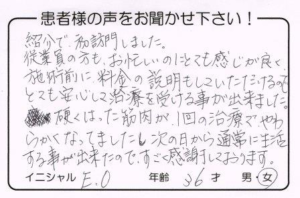 患者様の声をお聞かせ下さい！
紹介で、訪問しました。
従業員の方も、お忙しいのにとても感じが良く、
施術前に、料金の説明もしていただけるので
とても安心して治療を受ける事が出来ました。
硬くはった筋肉が、1回の治療でやわ
らかくなってましたし次の日から通常に生活
する事が出来たので、すごく感謝しております。
イニシャル E.O 年齢 36 才 男・女